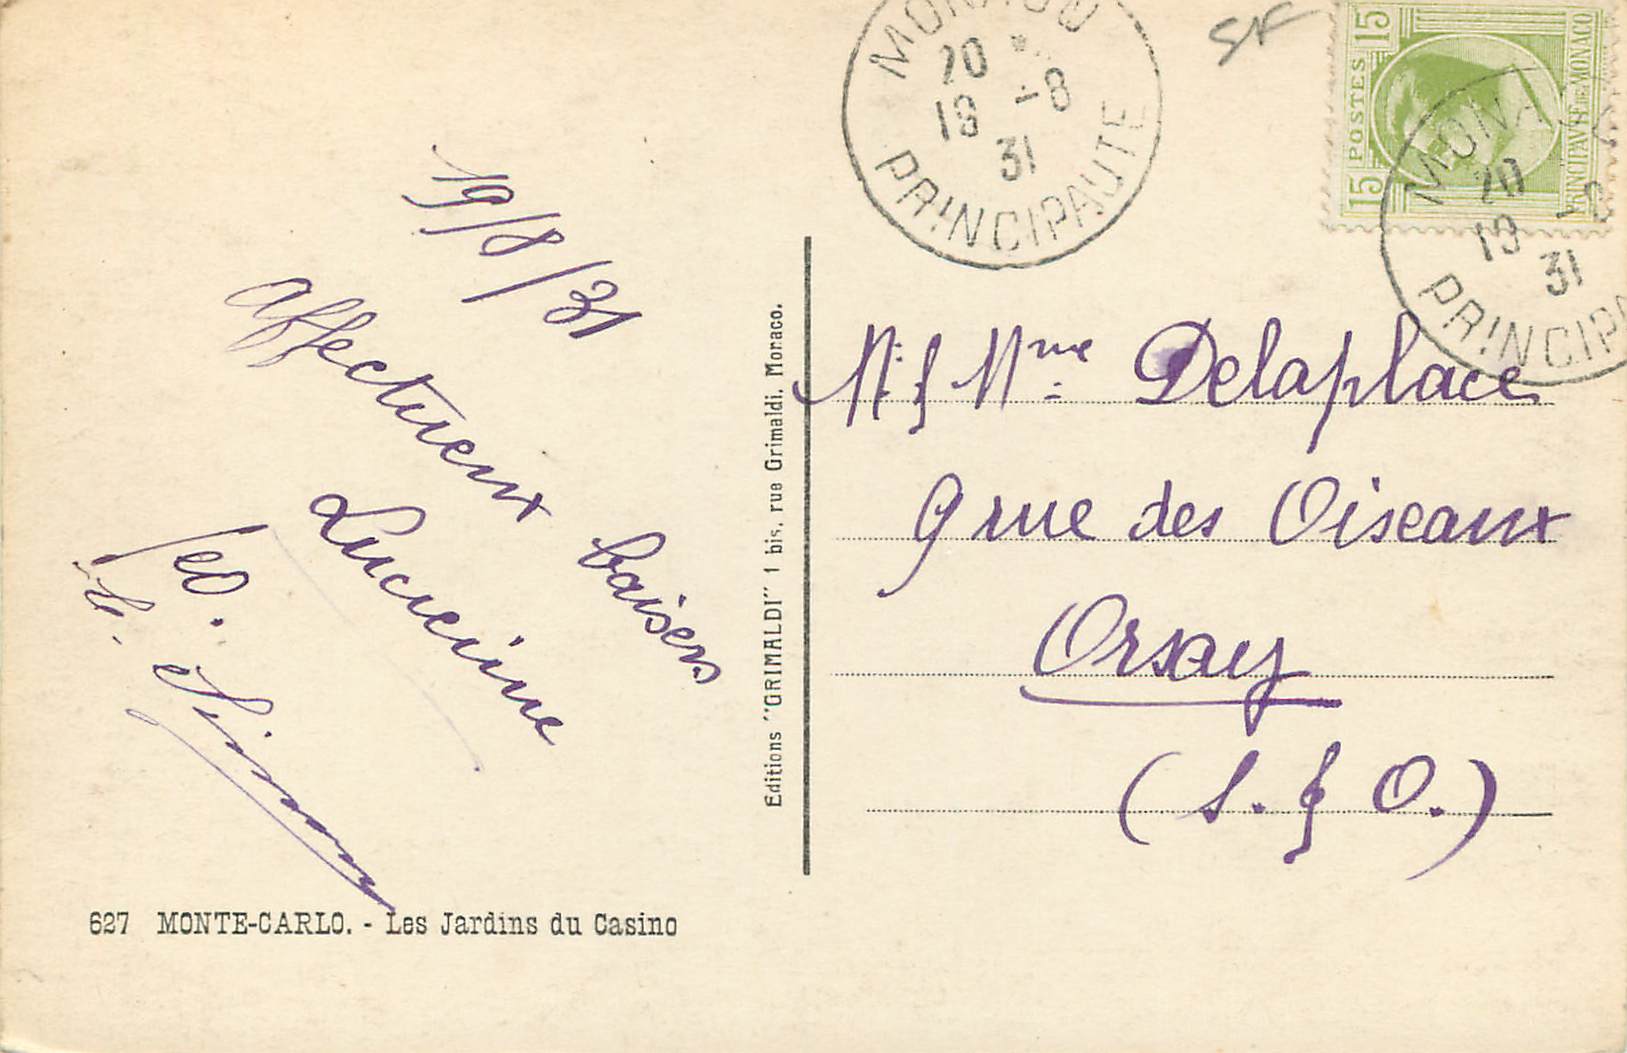 19/8/31
affectueux baisers
Lucienne
Editions "GRIMALDI" 1 bis, rue Grimaldi, Monaco.
627 MONTE-CARLO. - Les Jardins du Casino
MONACO
20
19 -8
31
PRINCIPAUTE
SF
15 POSTES 15
PRINCIPAUTÉ DE MONACO
MONAC
20
19
31
PRINCIPA
M. & Mme Delaplace
9 rue des Oiseaux
Orsay
(S. & O.)